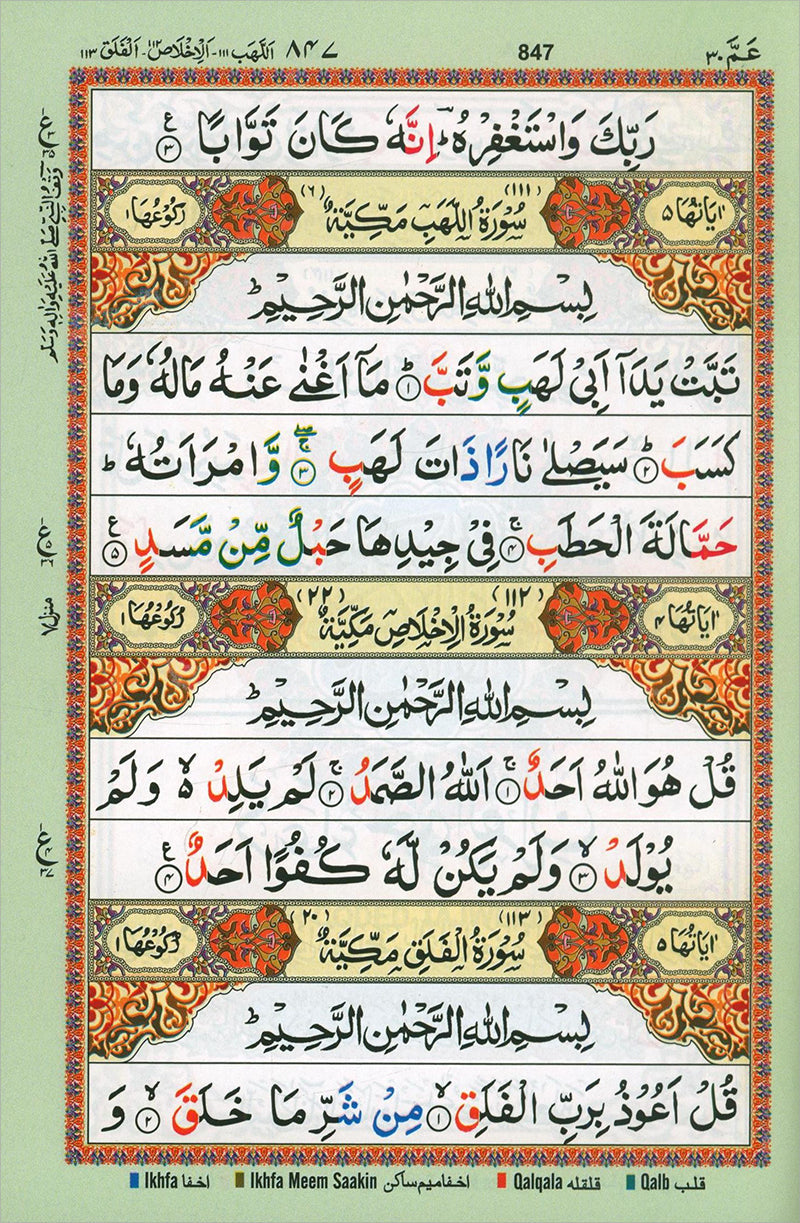 عَمَّ ٣٠
847
٨٤٧ اَللَّهَب ١١١- اَلْاِخْلَاص ١١٢- اَلْفَلَق ١١٣
رَبِّكَ وَاسْتَغْفِرْهُ ؕ اِنَّهٗ كَانَ تَوَّابًا ۝٣ ع
اٰيَاتُهَا ٥ (١١١) سُوْرَةُ اللَّهَبِ مَكِّيَّةٌ (٦) رُكُوْعُهَا ١
بِسْمِ اللّٰهِ الرَّحْمٰنِ الرَّحِيْمِ ؕ
تَبَّتْ يَدَاۤ اَبِىْ لَهَبٍ وَّتَبَّ ؕ ۝١ مَاۤ اَغْنٰى عَنْهُ مَالُهٗ وَمَا
كَسَبَ ؕ ۝٢ سَيَصْلٰى نَارًا ذَاتَ لَهَبٍ ۝٣ وَّ امْرَاَتُهٗ ؕ
حَمَّالَةَ الْحَطَبِ ۚ ۝٤ فِىْ جِيْدِهَا حَبْلٌ مِّنْ مَّسَدٍ ۝٥ ع
اٰيَاتُهَا ٤ (١١٢) سُوْرَةُ الْاِخْلَاصِ مَكِّيَّةٌ (٢٢) رُكُوْعُهَا ١
بِسْمِ اللّٰهِ الرَّحْمٰنِ الرَّحِيْمِ ؕ
قُلْ هُوَ اللّٰهُ اَحَدٌ ۚ ۝١ اَللّٰهُ الصَّمَدُ ۚ ۝٢ لَمْ يَلِدْ ۙ۬ وَلَمْ
يُوْلَدْ ۙ ۝٣ وَلَمْ يَكُنْ لَّهٗ كُفُوًا اَحَدٌ ۝٤ ع
اٰيَاتُهَا ٥ (١١٣) سُوْرَةُ الْفَلَقِ مَكِّيَّةٌ (٢٠) رُكُوْعُهَا ١
بِسْمِ اللّٰهِ الرَّحْمٰنِ الرَّحِيْمِ ؕ
قُلْ اَعُوْذُ بِرَبِّ الْفَلَقِ ۙ ۝١ مِنْ شَرِّ مَا خَلَقَ ۙ ۝٢ وَ
منزل ٧
Ikhfa اخفا Ikhfa Meem Saakin اخفامیم ساکن Qalqala قلقله Qalb قلب